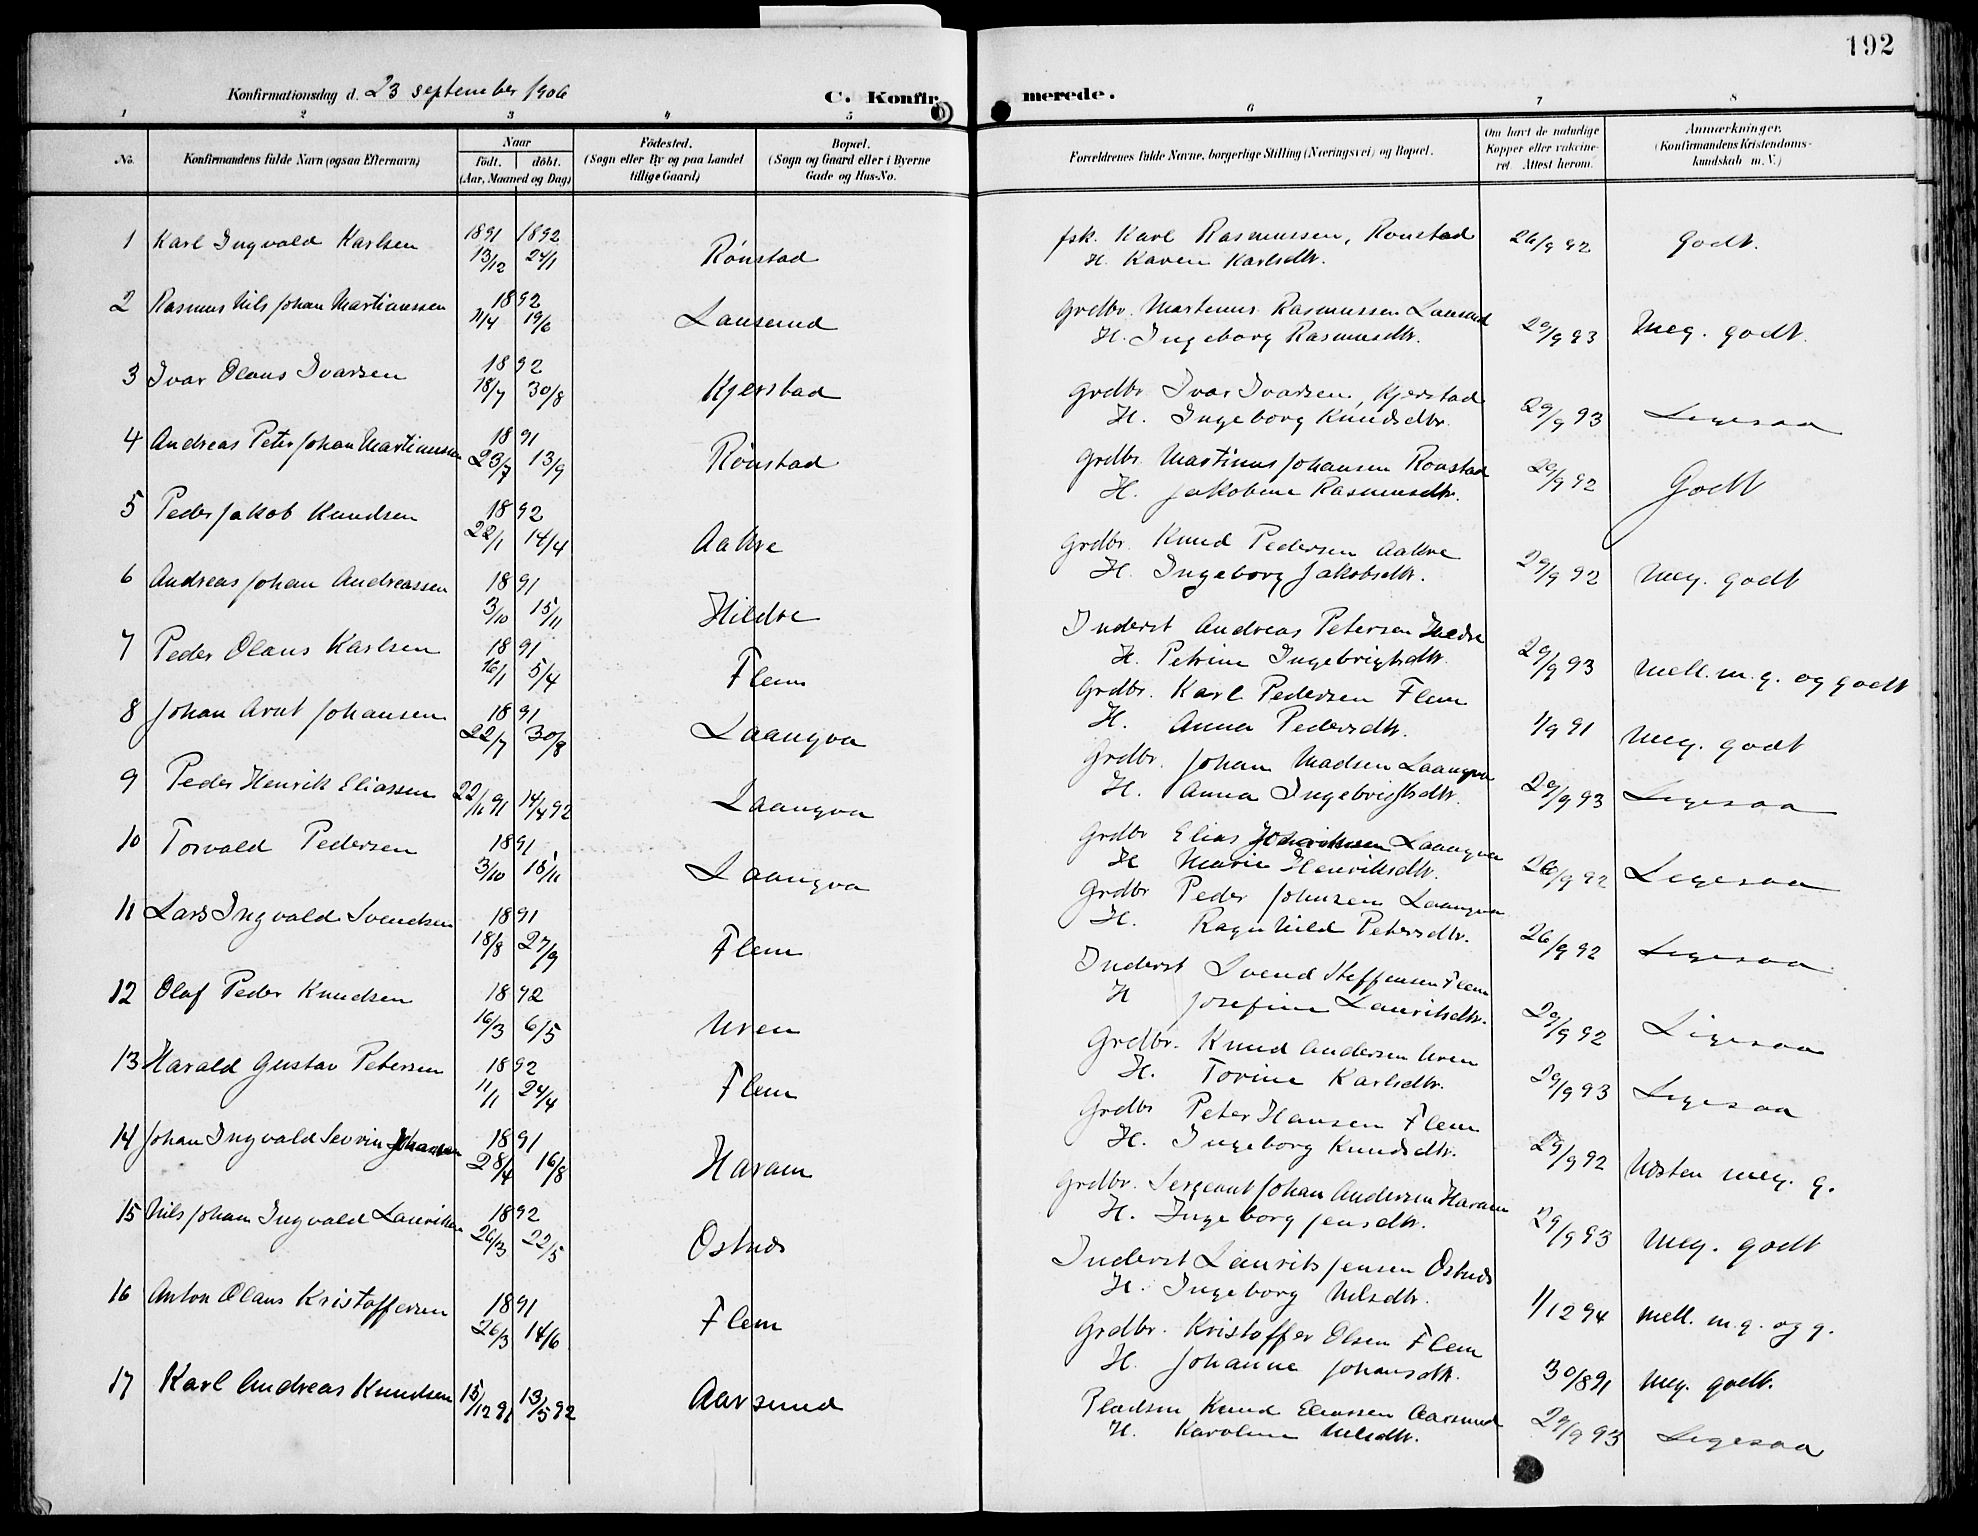 192
Konfirmationsdag d. 23 september 1906
C. Konfirmerede.
1 2 3 4 5 6 7 8
No.
Konfirmandens fulde Navn (ogsaa Efternavn)
Naar
födt. döbt.
(Aar, Maaned og Dag)
Födested.
(Sogn eller By og paa Landet
tillige Gaard)
Bopæl.
(Sogn og Gaard eller i Byerne
Gade og Hus-No.
Forældrenes fulde Navne, borgerlige Stilling (Næringsvei) og Bopæl.
Om havt de naturlige
Kopper eller vakcine-
ret Attest herom.
Anmærkninger.
(Konfirmandens Kristendoms-
kundskab m. V.)
1 Karl Ingvald Karlsen 1891 13/12 1892 24/1 Rönstad fsk. Karl Rasmussen, Ronstad 26/9 92 Godt.
H. Karen Karlsdtr.
2 Rasmus Nils Johan Martinussen 1892 11/4 19/6 Lausund Grdbr. Martinus Rasmussen Lausund 29/9 93 Meg. godt.
H. Ingeborg Rasmusdtr.
3 Ivar Olaus Ivarsen 1892 18/7 30/8 Kjerstad Grdbr. Ivar Ivarsen, Kjerstad 29/9 93 Ligesaa
H. Ingeborg Knudsdtr.
4 Andreas Peter Johan Martinussen 1891 23/7 13/9 Rönstad Grdbr. Martinus Johansen Ronstad 29/9 92 Godt
H. Jakobine Rasmusdtr.
5 Peder Jakob Knudsen 1892 22/1 14/4 Aakre Grdbr. Knud Pedersen Aakre 29/9 92 Meg. godt
H. Ingeborg Jakobsdtr.
6 Andreas Johan Andreassen 1891 3/10 15/11 Hildre Inderst Andreas Petersen Hildre 29/9 93 Mell. m. g. og godt
H. Petrine Ingebrigtsdtr.
7 Peder Olaus Karlsen 1891 16/1 5/4 Flem Grdbr. Karl Pedersen Flem 1/9 91 Meg. godt
H. Anna Pedersdtr.
8 Johan Arnt Johansen 1891 22/7 30/8 Laangva Grdbr. Johan Madsen Laangva 29/9 93 Ligesaa
H. Anna Ingebrigtsdtr.
9 Peder Henrik Eliassen 22/11 91 14/4 92 Laangva Grdbr Elias Laangva 26/9 92 Ligesaa
H Marie Henriksdtr.
10 Torvald Pedersen 1891 3/10 15/11 Laangva Grdbr Peder Johnsen Laangva 26/9 92 Ligesaa
H. Ragnhild Petersdtr.
11 Lars Ingvald Svendsen 1891 18/8 27/9 Flem Inderst Svend Steffensen Flem 29/9 92 Ligesaa
H Josefine Lauritsdtr.
12 Olaf Peder Knudsen 1892 16/3 6/5 Uren Grdbr. Knud Andersen Uren 29/9 93 Ligesaa
H. Torine Karlsdtr.
13 Harald Gustav Petersen 1892 11/1 24/4 Flem Grdbr Peter Hansen Flem 29/9 92 Næsten meg. g.
H. Ingeborg Knudsdtr.
14 Johan Ingvald Sevrin Johansen 1891 28/4 16/8 Haram Grdbr. Sergeant Johan Andersen Haram 29/9 93 Meg. godt
H. Ingeborg Jensdtr.
15 Nils Johan Ingvald Lauritsen 1892 26/3 22/5 Ostnæs Inderst Laurits Jensen Ostnæs 1/12 94 Mell. m. g. og g.
H. Ingeborg Nilsdtr.
16 Anton Olaus Kristoffersen 1891 26/3 14/6 Flem Grdbr. Kristoffer Olsen Flem 30/8 91 Meg. godt.
H. Johanne Johansdtr.
17 Karl Andreas Knudsen 15/12 91 13/5 92 Aarsund Pladsm Knud Eliassen Aarsund 29/9 93 Ligesaa
H. Karoline Nilsdtr.